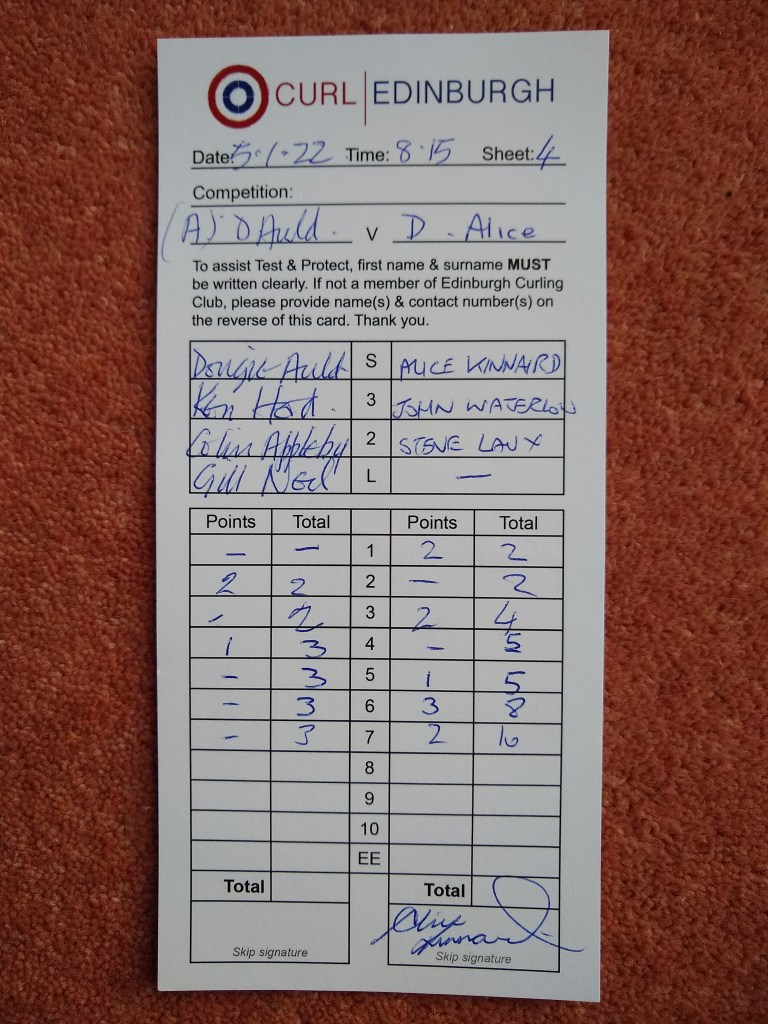 CURL | EDINBURGH
Date: 5.1.22 Time: 8.15 Sheet: 4
Competition:
(A) D Auld. v D. Alice
To assist Test & Protect, first name & surname MUST
be written clearly. If not a member of Edinburgh Curling
Club, please provide name(s) & contact number(s) on
the reverse of this card. Thank you.
Dougie Auld S ALICE KINNAIRD
Ken 3 JOHN WATERLOW
Colin Appleby 2 STEVE LAUX
Gill L —
Points Total Points Total
- - 1 2 2
2 2 2 - 2
- 2 3 2 4
1 3 4 - 5
- 3 5 1 5
- 3 6 3 8
- 3 7 2 10
8
9
10
EE
Total Total
Alice Kinnaird
Skip signature Skip signature